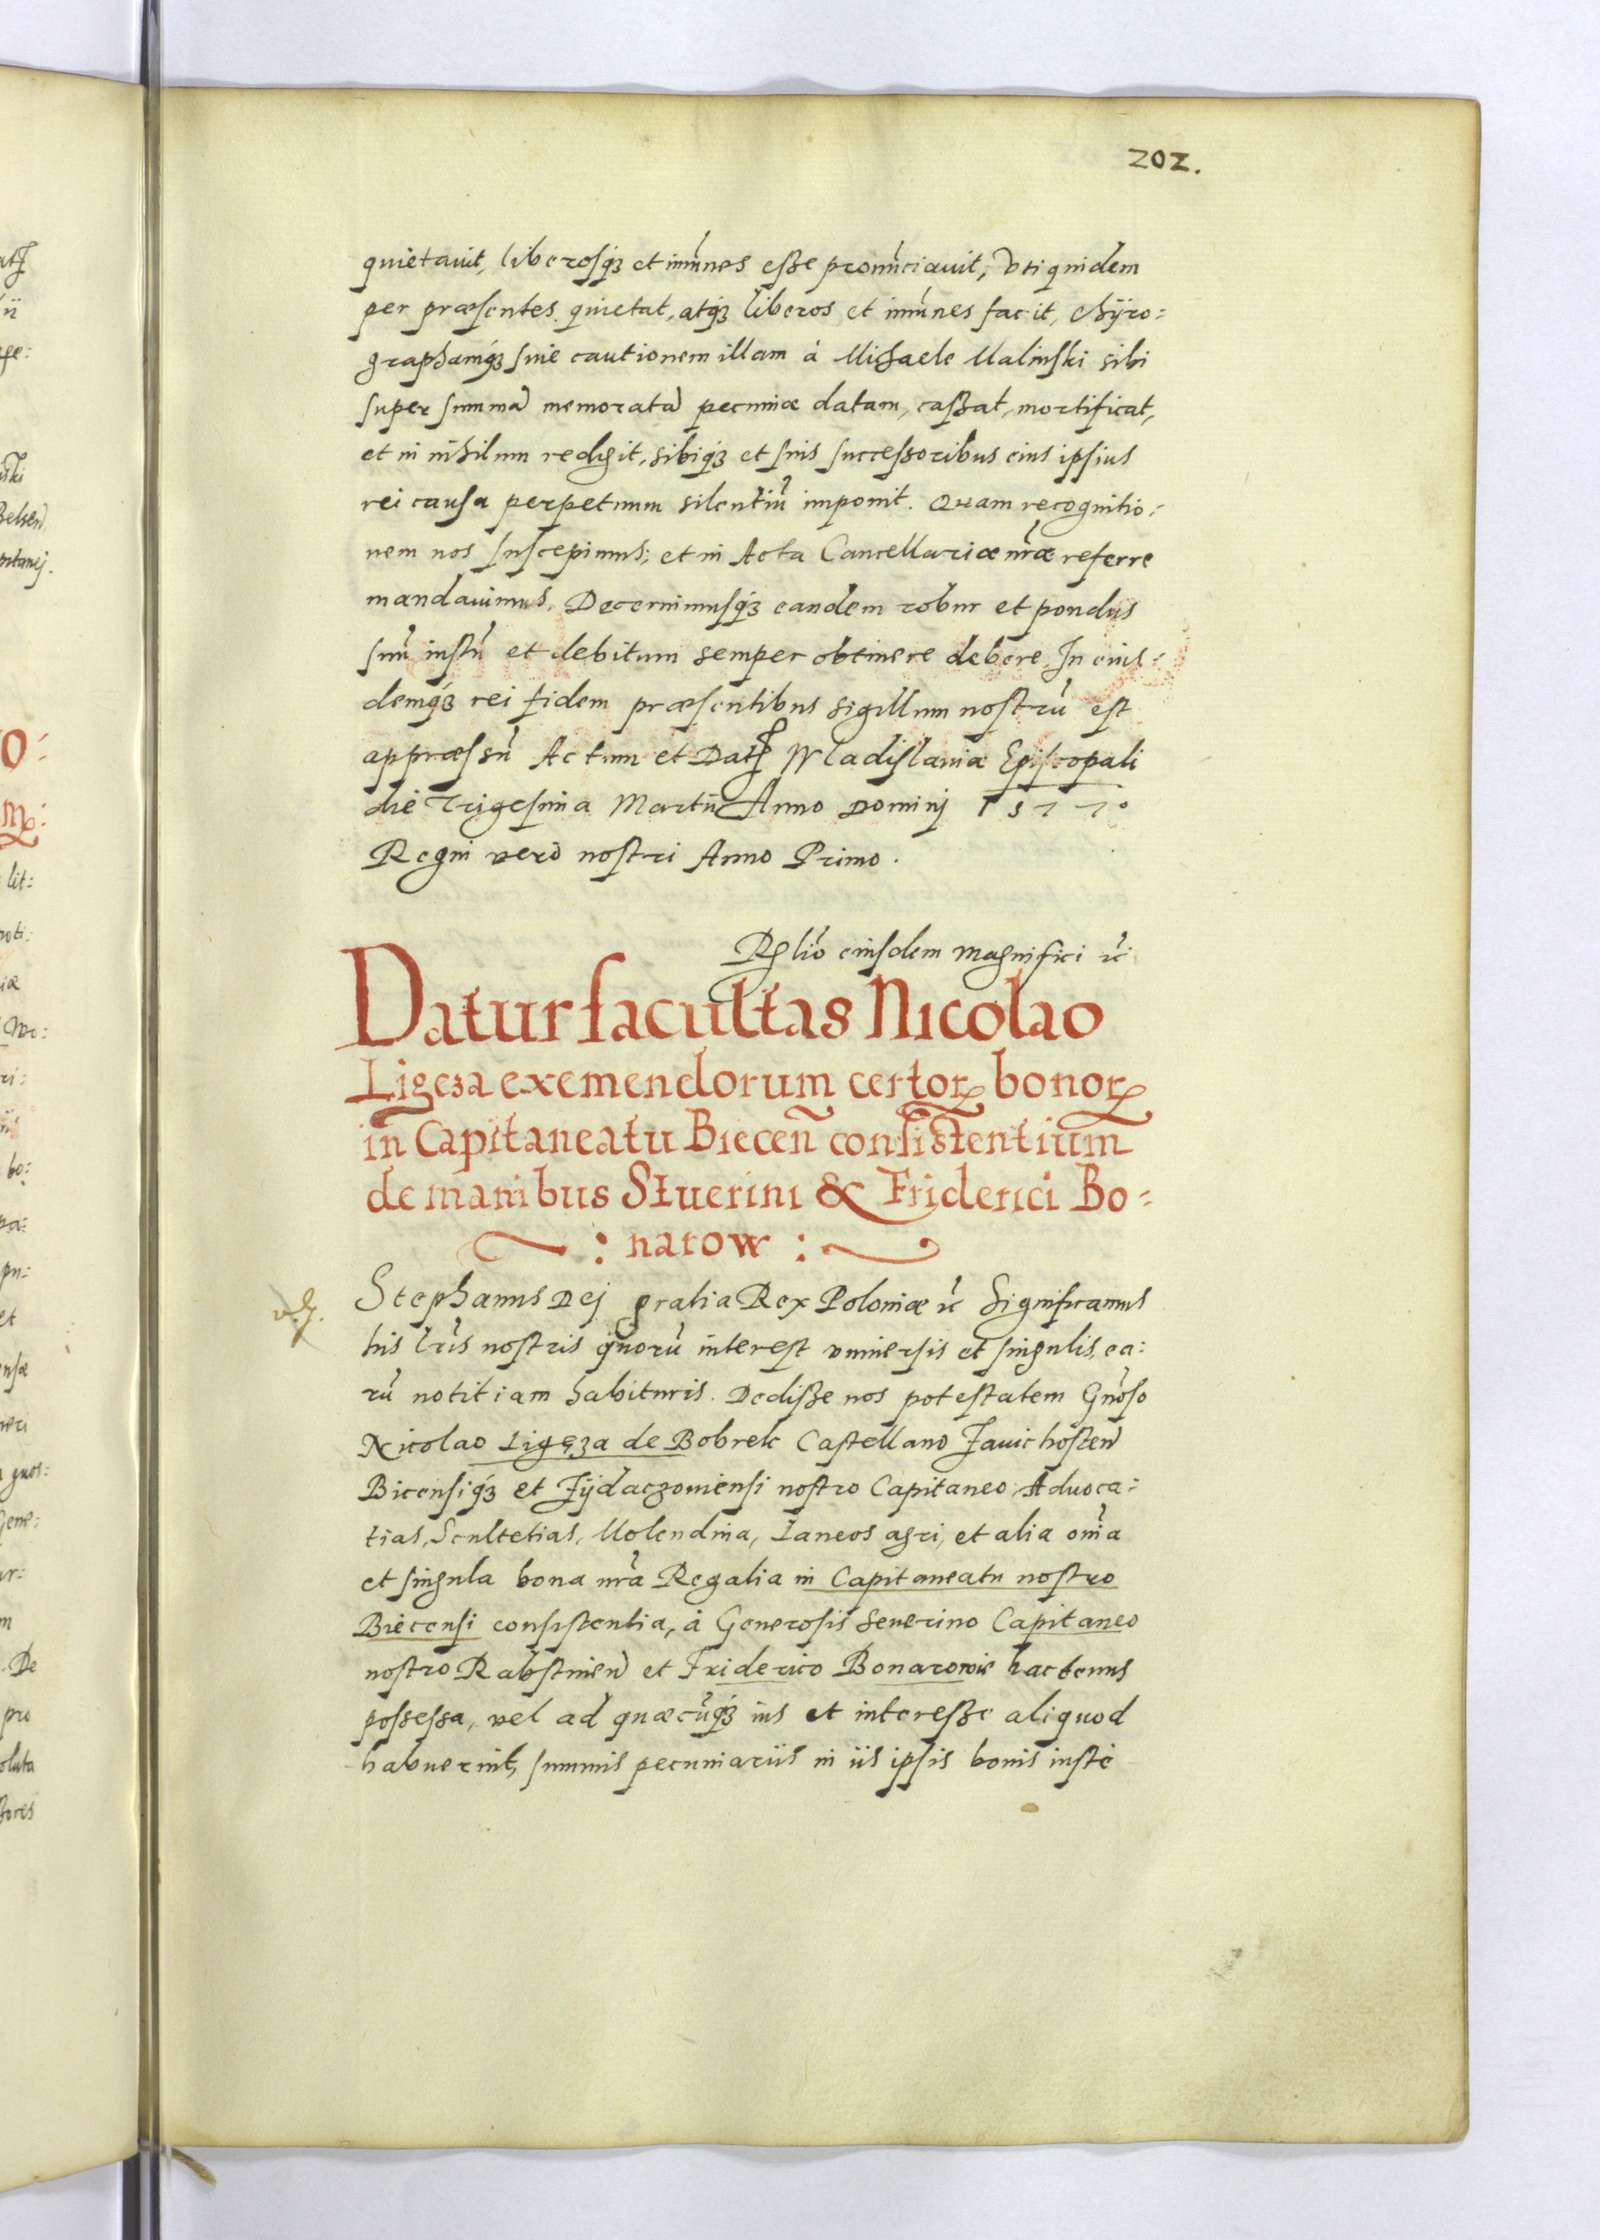 202.
quietauit, liberosq́ꝫ et im̃unes eſse pronũciauit, Vti quidem
per præsentes quietat, atq́ꝫ liberos et im̃unes facit, chÿro:
graphamq́ꝫ siue cautionem illam à Michaele Malinski sibi
super summã memoratã pecuniæ datam, caſsat, mortificat,
et in nihilum redigit, sibiq́ꝫ et suis succeſsoribus eius ipsius
rei causa perpetuum silentiũ imponit. Quam recognitio:
nem nos suscepimus; et in Acta Cancellariæ nr̃æ referre
mandauimus. Decernimusq́ꝫ eandem robur et pondus
suũ iustũ et debitum semper obtinere debere. In eius:
demq́ꝫ rei fidem præsentibus sigillum nostrũ est
appræssũ Actum et Datꝭ Wladislauiæ Episcopali
die Trigesima Martii Anno Dominj 1577º
Regni vero nostri Anno Primo.
Rẽlio eiusdem magnifici ꝛc̃
Datur facultas Nicolao
Ligeza exemendorum certorꝝ bonorꝝ
in Capitaneatu Biecen̄ consistentium
de manibus Siuerini & Friderici Bo:
: narow :
Stephanus Dej gratia Rex Poloniæ ꝛc̃ Significamus
his lr̃is nostris quorũ interest vniuersis et singulis, ea:
rũ notitiam habituris. Dediſse nos potestatem Gñoso
Nicolao Ligęza de Bobrek Castellano Zauichosten̄
Biecensiq́ꝫ et Zÿdaczouiensi nostro Capitaneo, Aduoca:
tias, Scultetias, Molendina, Laneos agri, et alia om̃ia
et singula bona nr̃a Regalia in Capitaneatu nostro
Biecensi consistentia, à Generosis Seuerino Capitaneo
nostro Rabstinen̄ et Friderico Bonarowie hactenus
possessa, vel ad quæcũq́ꝫ ius et intereſse aliquod
habuerint, summis pecuniariis in iis ipsis bonis iustè